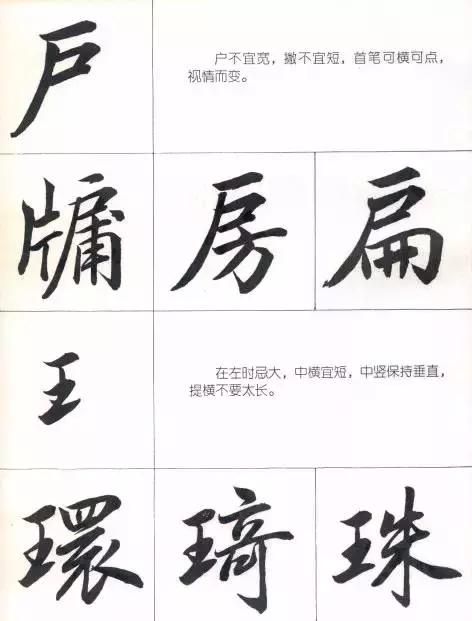 户
户不宜宽，撇不宜短，首笔可横可点，
视情而变。
牖 房 扁
王
在左时忌大，中横宜短，中竖保持垂直，
提横不要太长。
環 琦 珠